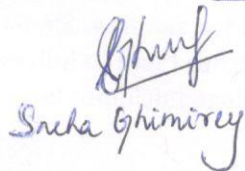 Sneha Ghimirey